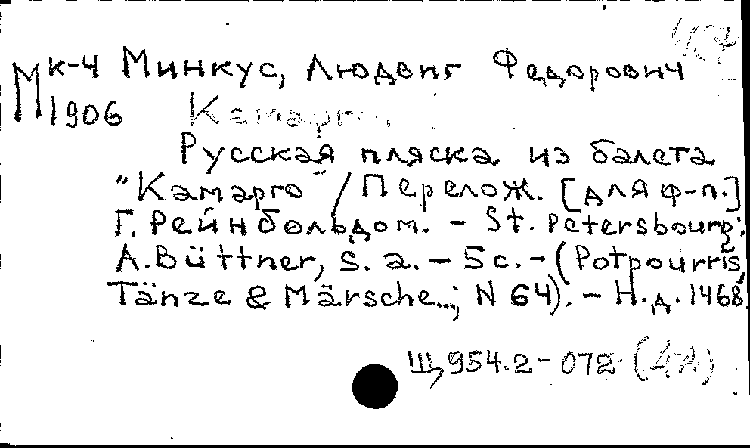 М к-4 Минкус, Людвиг Федорович
1906 Камарго.
Русская пляска из балета
"Камарго" / Перелож. [для ф-п.]
Г. Рейнбольдом. - St. Petersbourg:
A. Büttner, s. a. - 5 c. - (Potpourris,
Tänze & Märsche...; N 64). - Н. д. 1468.
Щ 954.2-072